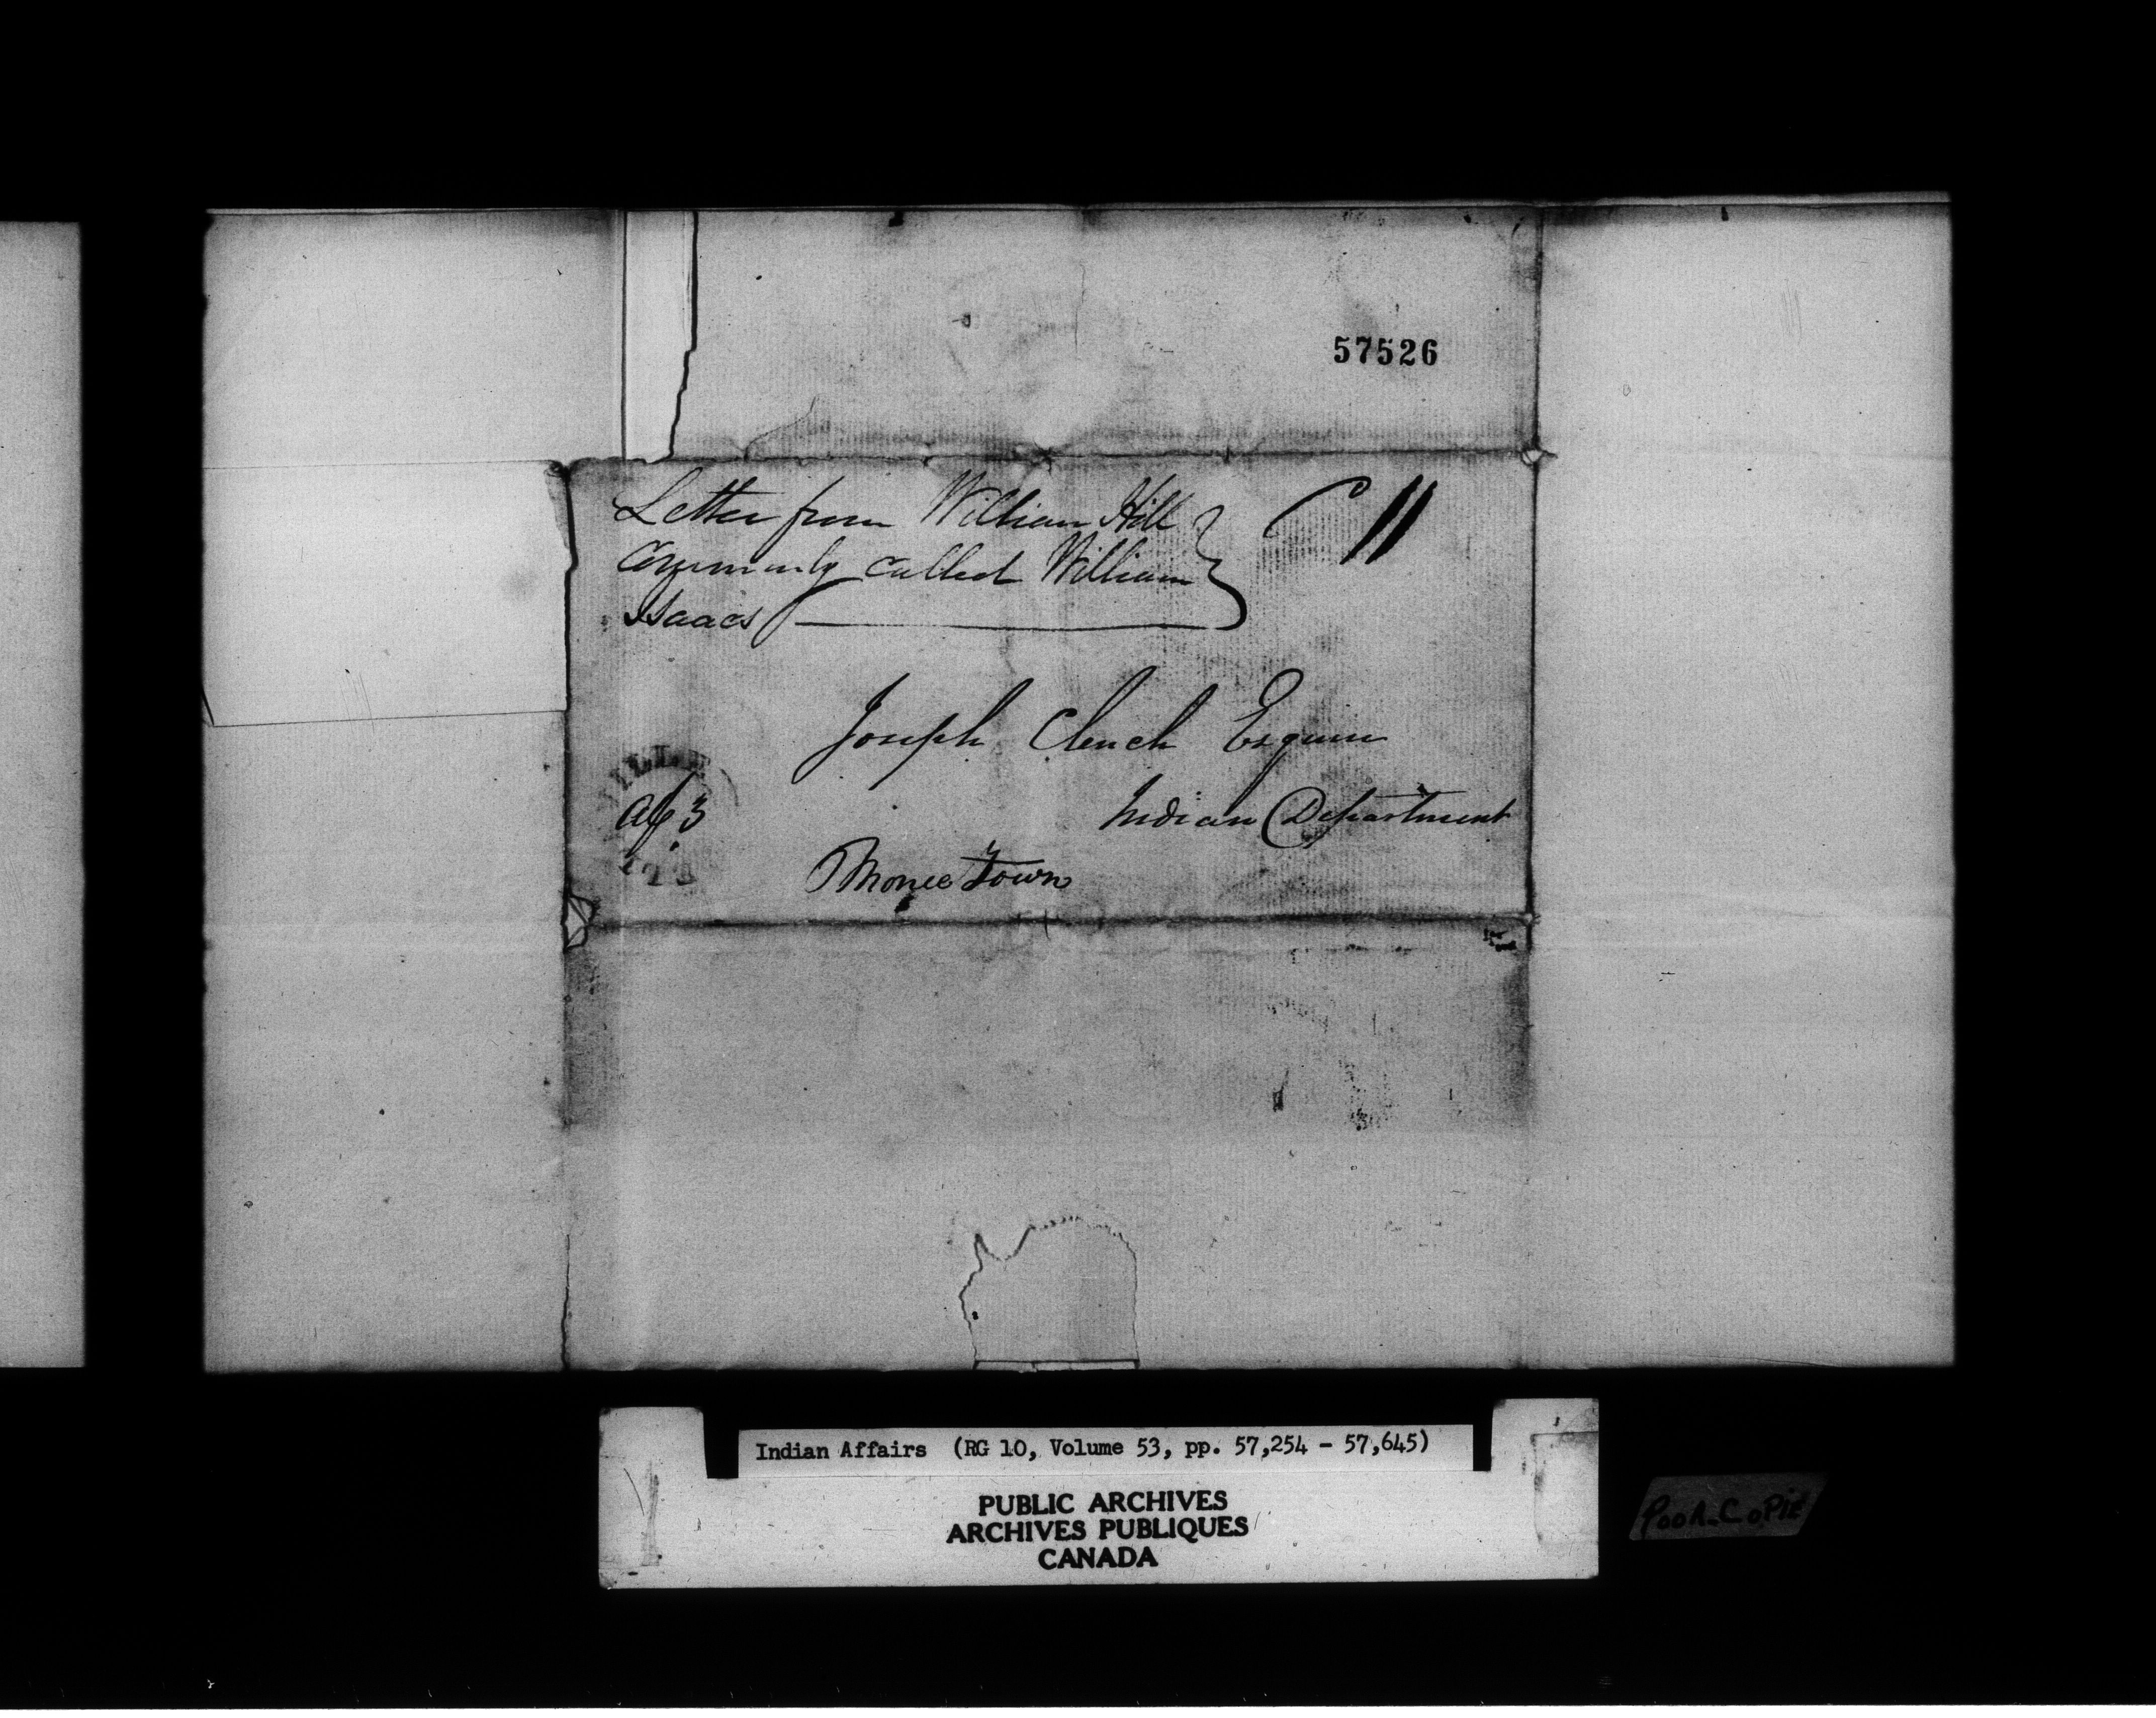 57526
Letter from William Hill
Commonly called William
Isaacs
C 11
Joseph Clench Esquire
Indian Department
Monee Town
Indian Affairs (RG 10, Volume 53, pp. 57,254 - 57,645)
PUBLIC ARCHIVES
ARCHIVES PUBLIQUES
CANADA
POOR COPIE